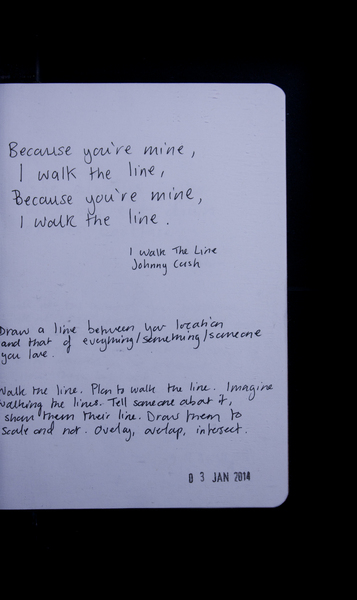 Because you're mine,
I walk the line,
Because you're mine,
I walk the line.
I Walk The Line
Johnny Cash
Draw a line between your location
and that of everything/something/someone
you love.
Walk the line. Plan to walk the line. Imagine
walking the lines. Tell someone about it,
show them their line. Draw them to
scale and not. Overlay, overlap, intersect.
03 JAN 2014